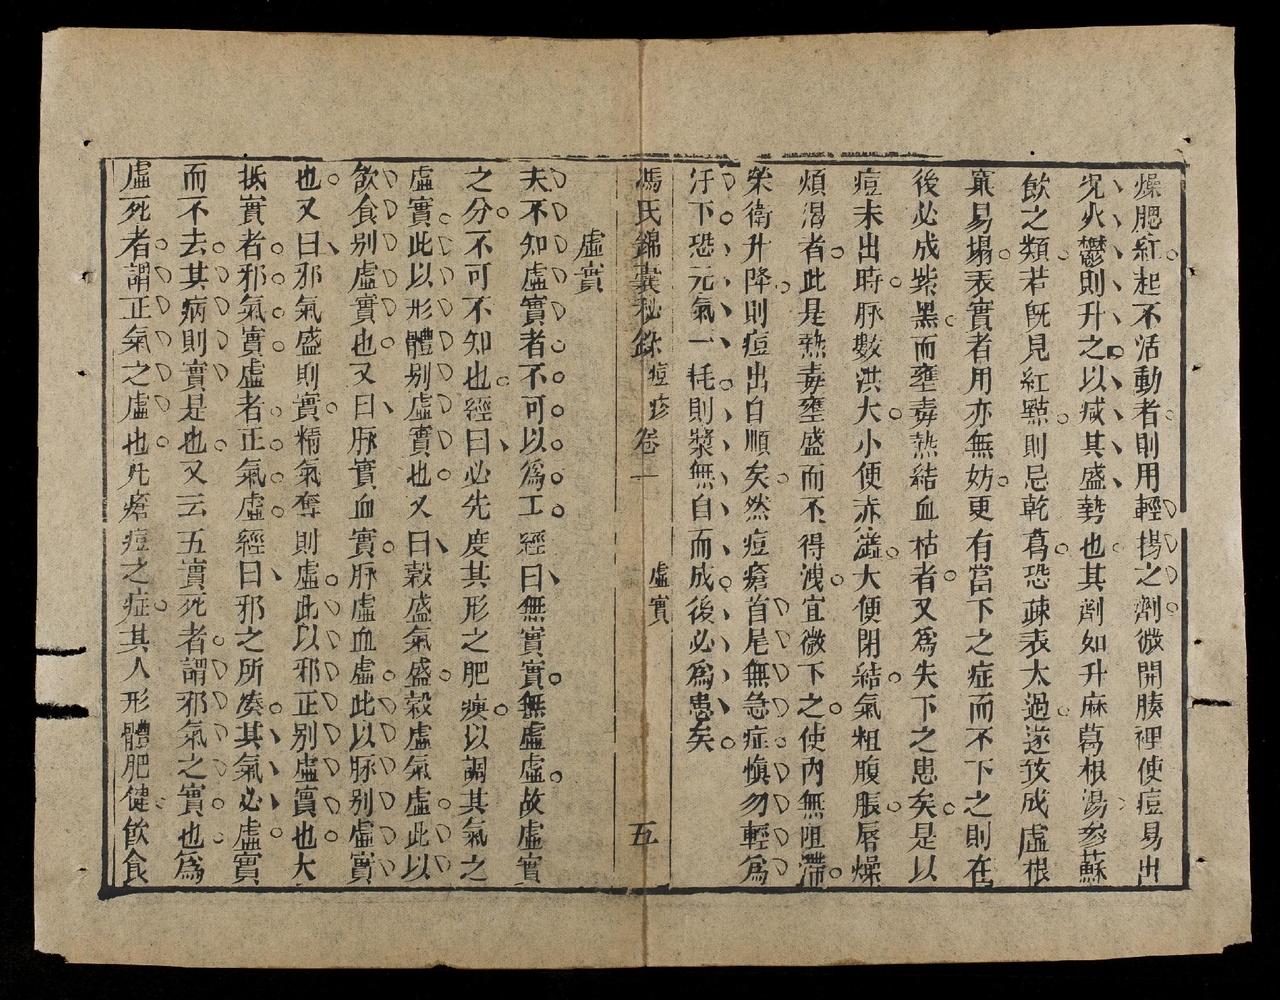 燥肥紅起不活動者則用輕揚之劑微開腠裡使痘易出
況火鬱則升之以減其盛勢也其劑如升麻葛根湯參蘇
飲之類若既見紅點則忌乾葛恐疎表太過遂致成虛根
窠易塌表實者用亦無妨更有當下之症而不下之則在
後必成紫黑而壅毒熱結血枯者又為失下之患矣是以
痘未出時脉數洪大小便赤澁大便閉結氣粗腹脹唇燥
煩渴者此是熱毒壅盛而不得洩宜微下之使內無阻滯
榮衛升降則痘出自順矣然痘瘡首尾無急症慎勿輕為
汗下恐元氣一耗則漿無自而成後必為患矣
馮氏錦囊秘錄 痘疹 卷一 虛實 五
虛實
夫不知虛實者不可以為工經曰無實實無虛虛故虛實
之分不可不知也經曰必先度其形之肥瘦以調其氣之
虛實此以形體别虛實也又曰穀盛氣盛穀虛氣虛此以
飲食别虛實也又曰脉實血實脉虛血虛此以脉别虛實
也又曰邪氣盛則實精氣奪則虛此以邪正别虛實也大
抵實者邪氣實虛者正氣虛經曰邪之所凑其氣必虛實
而不去其病則實是也又云五實死者謂邪氣之實也為
虛死者謂正氣之虛也凡瘡痘之症其人形體肥健飲食